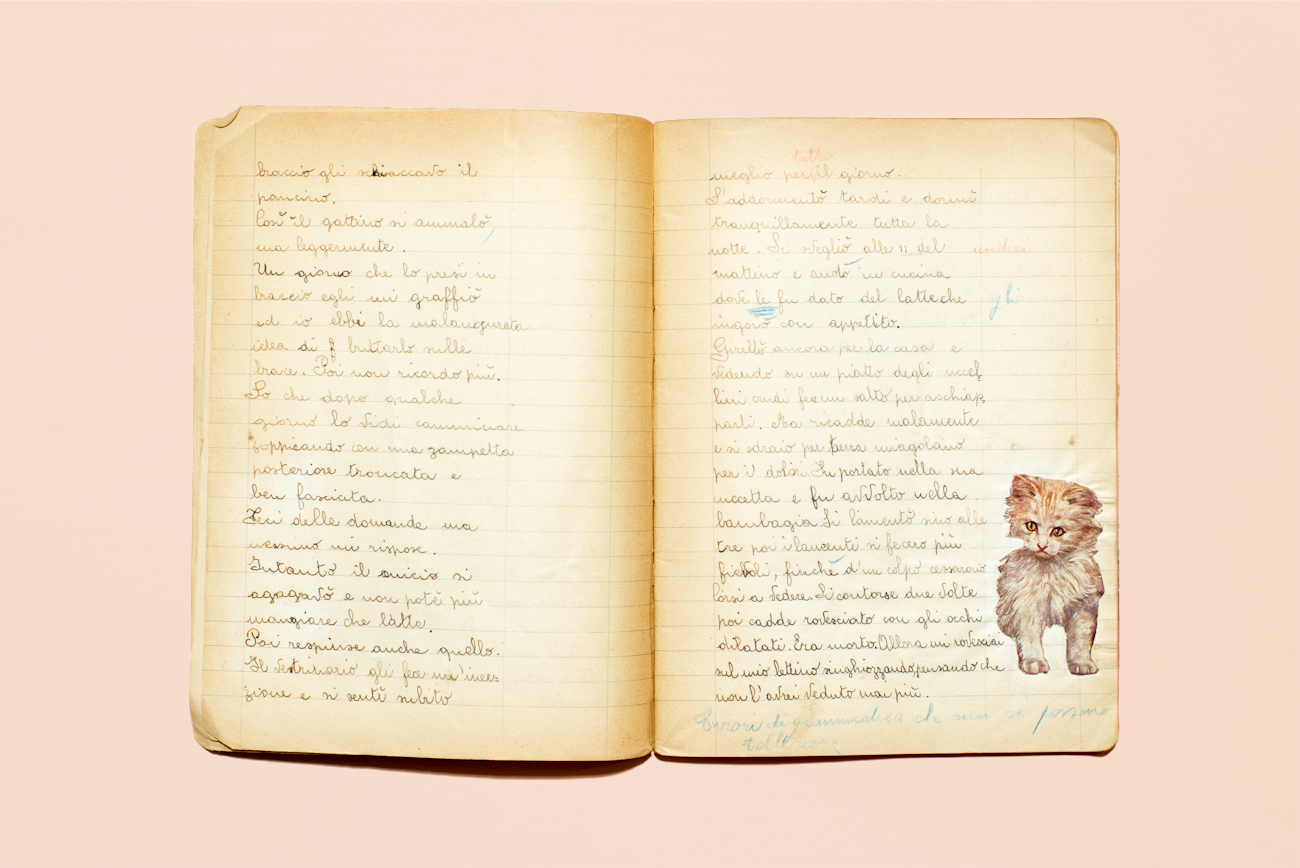 braccio gli schiaccavo il
pancino.
Così il gattino si ammalò,
ma leggermente.
Un giorno che lo presi in
braccio egli mi graffiò
ed io ebbi la malaugurata
idea di buttarlo sulle
brace. Poi non ricordo più.
So che dopo qualche
giorno lo vidi camminare
zoppicando con una zampetta
posteriore troncata e
ben fasciata.
Feci delle domande ma
nessuno mi rispose.
Intanto il micio si
agagavò e non potè più
mangiare che latte.
Poi respinse anche quello.
Il vestrinario gli fece un'inie=
zione e si sentì subito
tutto
meglio per il giorno.
S'addormentò tardi e dormì
tranquillamente tutta la
notte. Si svegliò alle 11 del undici
mattino e andò in cucina
dove le fu dato del latte che gli
ingoiò con appetito.
Girellò ancora per la casa e
vedendo su un piatto degli uccel=
lini crudi fece un salto per acchiap=
parli. Ma ricadde malamente
e si sdraiò per terra miagolano
per i dolori. Fu portato nella sua
cuccetta e fu avvolto nella
bambagia. Si limentò sino alle
tre poi i lamenti si fecero più
fievoli, finchè d'un colpo cessarono
Corsi a vedere. Si contorse due volte
poi cadde rovesciato con gli occhi
dilatati. Era morto. Allora mi rovesciai
sul mio lettino singhiozzando, pensando che
non l'avrei veduto mai più.
Errori di grammatica che non si possono
tollerare